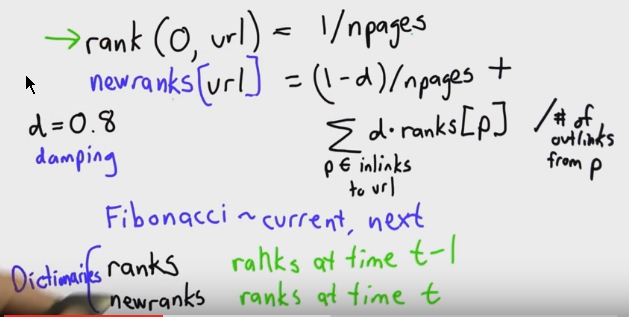 → rank (0, url) = 1/npages
newranks[url] = (1-d)/npages +
d=0.8
damping
∑ d·ranks[p] / # of outlinks from p
p ∈ inlinks to url
Fibonacci ~ current, next
Dictionaries { ranks ranks at time t-1
newranks ranks at time t